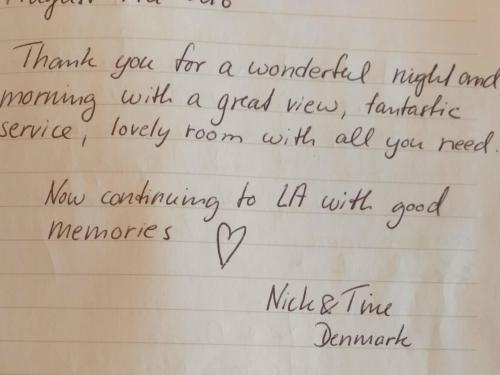 August
Thank you for a wonderful night and
morning with a great view, fantastic
service, lovely room with all you need.
Now continuing to LA with good
memories ♡
Nick & Tine
Denmark